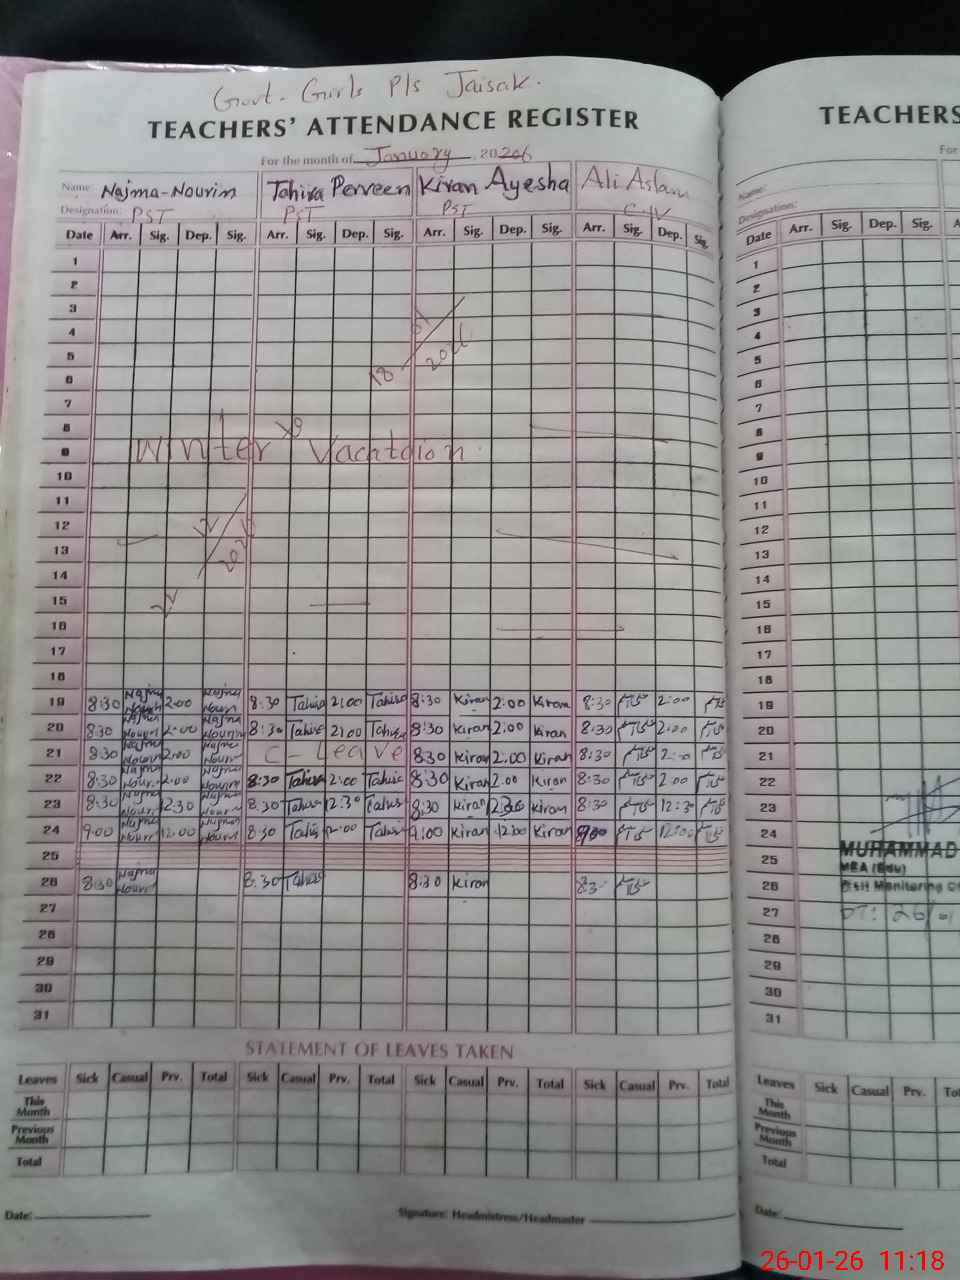 Govt. Girls P/s Jaisak.
TEACHERS' ATTENDANCE REGISTER
For the month of January 2026
Name: Najma-Nourin Tahira Perveen Kiran Ayesha Ali Aslam
Designation: PST PST PST C-IV
Date Arr. Sig. Dep. Sig. Arr. Sig. Dep. Sig. Arr. Sig. Dep. Sig. Arr. Sig. Dep. Sig.
1
2
3
18/01/2026
4
5
6
7
8
to
9 Winter Vachtdion
10
11
12
22/12/2025
13
14
15
16
17
18
19 8:30 Najma Nourin 2:00 Najma Nourin 8:30 Tahira 2:00 Tahira 8:30 Kiran 2:00 Kiran 8:30 2:00
20 8:30 Najma Nourin 2:00 Najma Nourin 8:30 Tahira 2:00 Tahira 8:30 Kiran 2:00 Kiran 8:30 2:00
21 8:30 Najma Nourin 2:00 Najma Nourin C - Leave 8:30 Kiran 2:00 Kiran 8:30 2:00
22 8:30 Najma Nourin 2:00 Najma Nourin 8:30 Tahira 2:00 Tahira 8:30 Kiran 2:00 Kiran 8:30 2:00
23 8:30 Najma Nourin 12:30 Najma Nourin 8:30 Tahira 12:30 Tahira 8:30 Kiran 12:30 Kiran 8:30 12:30
24 9:00 Najma Nourin 12:00 Najma Nourin 8:30 Tahira 12:00 Tahira 9:00 Kiran 12:00 Kiran 9:00 12:00
25
26 8:30 Najma Nourin 8:30 Tahira 8:30 Kiran 8:30
27
28
29
30
31
STATEMENT OF LEAVES TAKEN
Leaves Sick Casual Prv. Total Sick Casual Prv. Total Sick Casual Prv. Total Sick Casual Prv. Total
This Month
Previous Month
Total
Date: Signature: Headmistress/Headmaster
TEACHERS
For
Name:
Designation:
Date Arr. Sig. Dep. Sig.
1
2
3
4
5
6
7
8
9
10
11
12
13
14
15
16
17
18
19
20
21
22
23
24
MUHAMMAD
25 MEA (Edu)
26 Monitoring
27 DT: 26/01
28
29
30
31
Leaves Sick Casual Prv.
This Month
Previous Month
Total
Date:
26-01-26 11:18